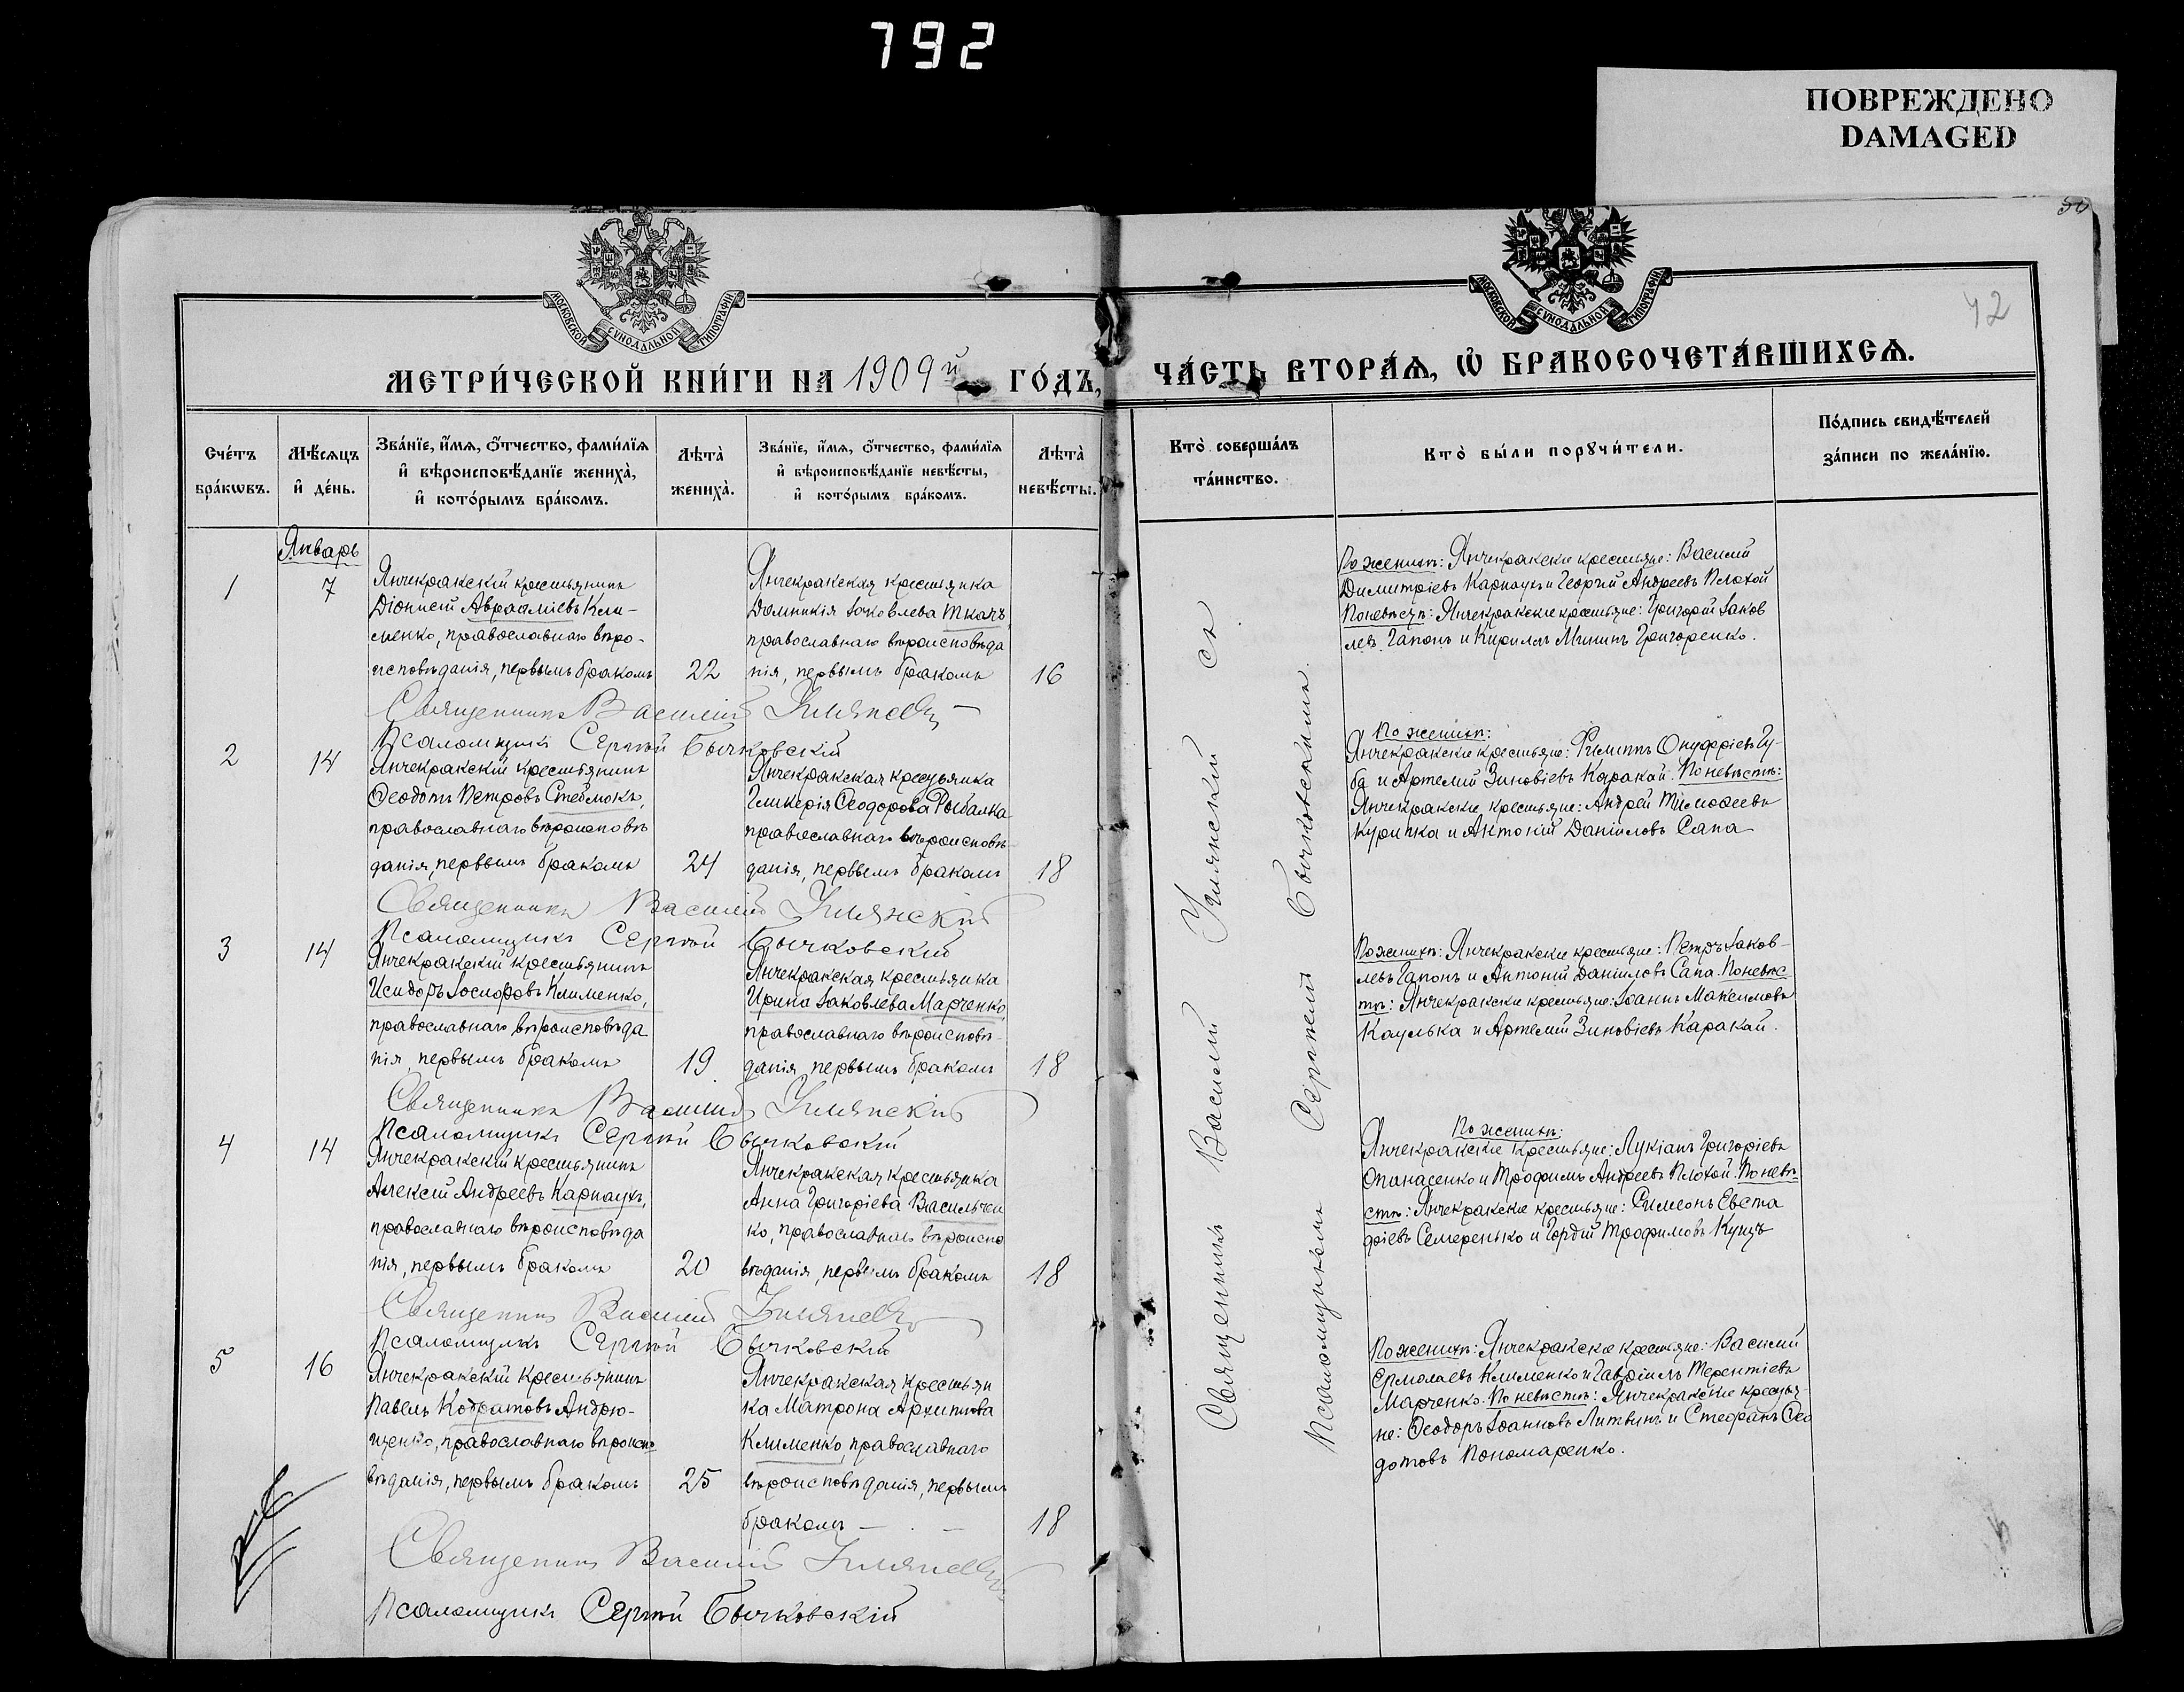 792
ПОВРЕЖДЕНО
DAMAGED
50
42
МОСКОВСКОЙ СѴНОДАЛЬНОЙ ТИПОГРАФІИ
МОСКОВСКОЙ СѴНОДАЛЬНОЙ ТИПОГРАФІИ
МЕТРИ́ЧЕСКОЙ КНИ́ГИ НА 1909й ГО́ДЪ,
ЧА́СТЬ ВТОРА́Ѧ, Ѽ БРАКОСОЧЕТА́ВШИХСѦ.
Сче́тъ бра́кωвъ.
Мѣ́сѧцъ и҆ де́нь.
Зва́нїе, и҆́мѧ, о҆́тчество, фами́лїѧ и҆ вѣроисповѣ́данїе жениха̀, и҆ кото́рымъ бра́комъ.
Лѣ́та̀ жениха̀.
Зва́нїе, и҆́мѧ, о҆́тчество, фами́лїѧ и҆ вѣроисповѣ́данїе невѣ́сты, и҆ кото́рымъ бра́комъ.
Лѣ́та̀ невѣ́сты.
Кто̀ соверша́лъ та́инство.
Кто̀ бы́ли порꙋчи́тели.
По́дпись свидѣ́телей за́писи по жела́нїю.
Январь
1
7
Янчекракскій крестьянинъ
Діонисій Авраамiевъ Кли-
менко, православнаго вѣро-
исповѣданія, первымъ бракомъ
22
Янчекракская крестьянка
Домникія Іаковлева Ткачъ,
православнаго вѣроисповѣда
нія, первымъ бракомъ
16
По женихѣ: Янчекракскіе крестьяне: Василій
Димитріевъ Карнаухъ и Георгій Андреевъ Плохой
По невѣстѣ: Янчекракскіе крестьяне: Григорій Іаков
левъ Гапонъ и Кириллъ Мининъ Григоренко.
Священникъ Василій Улянскій
Псаломщикъ Сергій Бычковскій
2
14
Янчекракскій крестьянинъ
Ѳеодотъ Петровъ Стеблюкъ,
православнаго вѣроисповѣ
данія, первымъ бракомъ
24
Янчекракская крестьянка
Гликерія Ѳеодорова Рыбалка
православнаго вѣроисповѣ-
данія, первымъ бракомъ
18
По женихѣ:
Янчекракскіе крестьяне: Филиппъ Онуфріевъ Гу-
ба и Артемій Зиновіевъ Каракай. По невѣстѣ:
Янчекракскіе крестьяне: Андрей Тимоѳеевъ
Курочка и Антоній Даніиловъ Сапа
Священникъ Василій Улянскій
Псаломщикъ Сергій Бычковскій
3
14
Янчекракскій крестьянинъ
Исидоръ Іосифовъ Клименко,
православнаго вѣроисповѣда
нія, первымъ бракомъ
19
Янчекракская крестьянка
Ирина Іаковлева Марченко,
православнаго вѣроисповѣ-
данія, первымъ бракомъ
18
По женихѣ: Янчекракскіе крестьяне: Петръ Іаков-
левъ Гапонъ и Антоній Даніиловъ Сапа. По невѣс
тѣ: Янчекракскіе крестьяне: Іоаннъ Максимовъ
Каулька и Артемій Зиновіевъ Каракай.
Священникъ Василій Улянскій
Псаломщикъ Сергій Бычковскій
4
14
Янчекракскій крестьянинъ
Алексій Андреевъ Карнаухъ,
православнаго вѣроисповѣда
нія, первымъ бракомъ
20
Янчекракская крестьянка
Анна Григоріева Васильчен
ко, православнаго вѣроиспо
вѣданія, первымъ бракомъ
18
По женихѣ:
Янчекракскіе крестьяне: Лукіанъ Григоріевъ
Опанасенко и Трофимъ Андреевъ Плохой. По невѣ-
стѣ: Янчекракскіе крестьяне: Симеонъ Евста
фіевъ Семеренько и Гордій Трофимовъ Куцъ
Священникъ Василій Улянскій
Псаломщикъ Сергій Бычковскій
5
16
Янчекракскій крестьянинъ
Павелъ Кодратовъ Андрю-
щенко, православнаго вѣроиспо
вѣданія, первымъ бракомъ
25
Янчекракская крестьян
ка Матрона Архипова
Клименко, православнаго
вѣроисповѣданія, первымъ
бракомъ
18
По женихѣ: Янчекракскіе крестьяне: Василій
Ермолаевъ Клименко и Гавріилъ Терентіевъ
Марченко. По невѣстѣ: Янчекракскіе крестья-
не: Ѳеодоръ Іоанновъ Литвинъ и Стефанъ Ѳео
дотовъ Пономаренко.
Священникъ Василій Улянскій
Псаломщикъ Сергій Бычковскій
Священникъ Василій Улянскій съ
Псаломщикомъ Сергіемъ Бычковскимъ